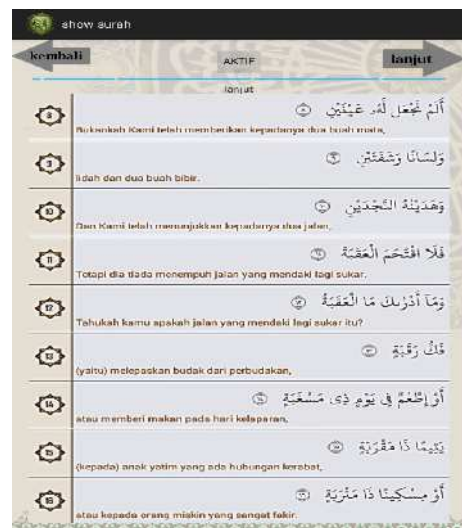 show surah
kembali AKTIF lanjut
lanjut
أَلَمْ نَجْعَل لَّهُۥ عَيْنَيْنِ ۝٨
8
Bukankah Kami telah memberikan kepadanya dua buah mata,
وَلِسَانًا وَشَفَتَيْنِ ۝٩
9
lidah dan dua buah bibir.
وَهَدَيْنَٰهُ ٱلنَّجْدَيْنِ ۝١٠
10
Dan Kami telah menunjukkan kepadanya dua jalan,
فَلَا ٱقْتَحَمَ ٱلْعَقَبَةَ ۝١١
11
Tetapi dia tiada menempuh jalan yang mendaki lagi sukar.
وَمَآ أَدْرَىٰكَ مَا ٱلْعَقَبَةُ ۝١٢
12
Tahukah kamu apakah jalan yang mendaki lagi sukar itu?
فَكُّ رَقَبَةٍ ۝١٣
13
(yaitu) melepaskan budak dari perbudakan,
أَوْ إِطْعَٰمٌ فِى يَوْمٍ ذِى مَسْغَبَةٍ ۝١٤
14
atau memberi makan pada hari kelaparan,
يَتِيمًا ذَا مَقْرَبَةٍ ۝١٥
15
(kepada) anak yatim yang ada hubungan kerabat,
أَوْ مِسْكِينًا ذَا مَتْرَبَةٍ ۝١٦
16
atau kepada orang miskin yang sangat fakir.